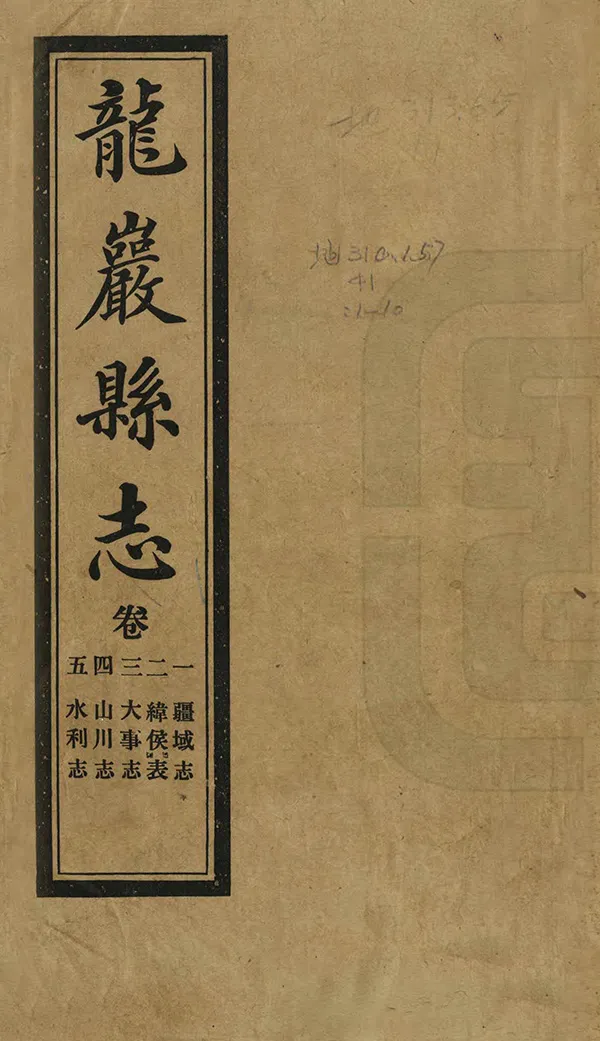 龍巖縣志
卷
一 疆域志
二 緯侯表
三 大事志
四 山川志
五 水利志
地 313.65
地 310.157
41
:1-10